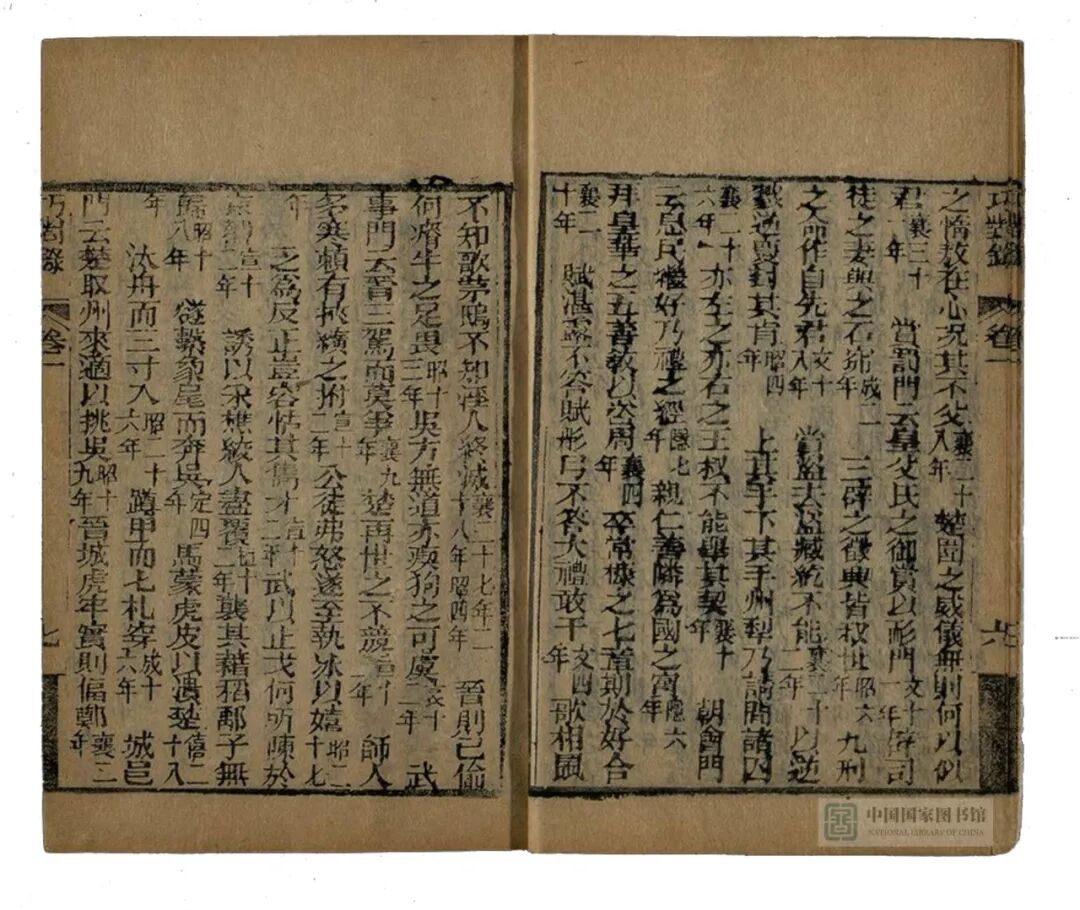 巧對錄 卷一 六
之惰敖在心況其不父襄二十八年 楚圉之威儀無則何以似
君襄三十一年 賞罰門云皇父氏之御賞以彤門文十一年 辟司
徒之妻與之石窌成二年 三辟之徵興皆叔世昭六年 九刑
之命作自先君文十八年 賞盜大盜臧紇不能襄二十二年 以逆
戮逆慶封其肯昭四年 上其手下其手州犁乃請問諸囚
襄二十六年 亦左之亦右之王叔不能舉其契襄十年 朝會門
云息民禮好乃禮之經隱七年 親仁善鄰為國之寶隱六年
拜皇華之五善敎以咨周襄四年 卒常棣之七章期於好合
襄二十年 賦湛露不答賦彤弓不答大禮敢干文四年 歌相鼠
不知歌茅鴟不知淫人終滅襄二十七年二十八年昭四年 晉則已偷
何瘠牛之足畏昭十三年 吳方無道亦瘈狗之可虞哀十二年 武
事門云晉三駕而莫爭襄九年 楚再世之不競宣十二年 師人
多寒賴有挾纊之拊宣十二年 公徒弗怒遂至執冰以嬉昭二十七
年 之為反正豈容恬其雋才宣十二年 武以止戈何所陳於
京觀宣十二年 誘以采樵絞人盡覆桓十二年 襲其藉稻鄅子無
歸昭十八年 燧繫象尾而奔吳定四年 馬蒙虎皮以潰楚僖二十八
年 汰舟而三寸入昭二十六年 蹲甲而七札穿成十六年 城邑
門云楚取州來適以挑吳昭十九年 晉城虎牢實則偪鄭襄二年
巧對錄 卷一 七
中国国家图书馆
NATIONAL LIBRARY OF CHINA